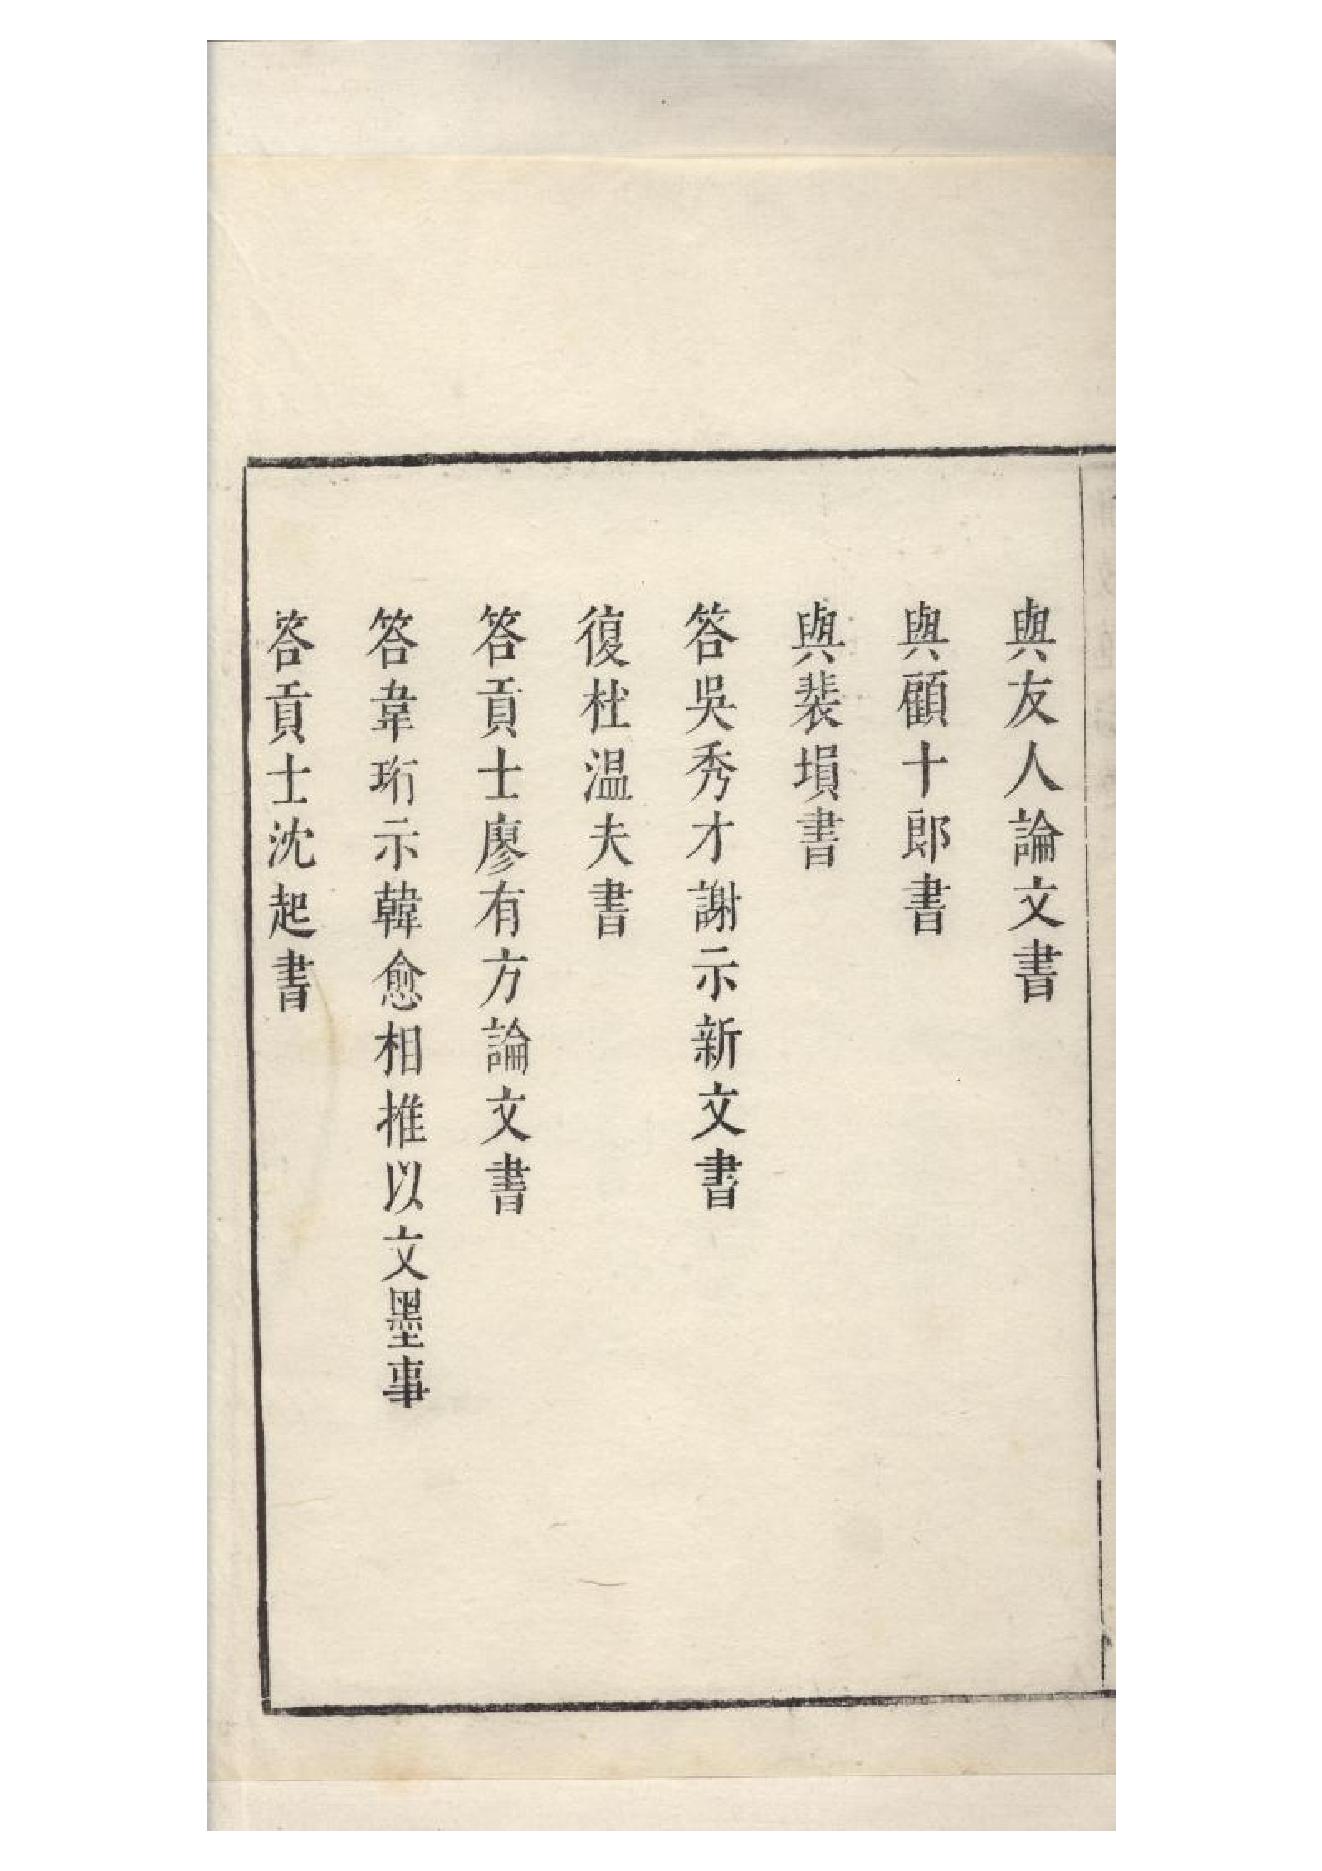 與友人論文書
與顧十郎書
與裴塤書
答吳秀才謝示新文書
復杜温夫書
答貢士廖有方論文書
答韋珩示韓愈相推以文墨事
答貢士沈起書